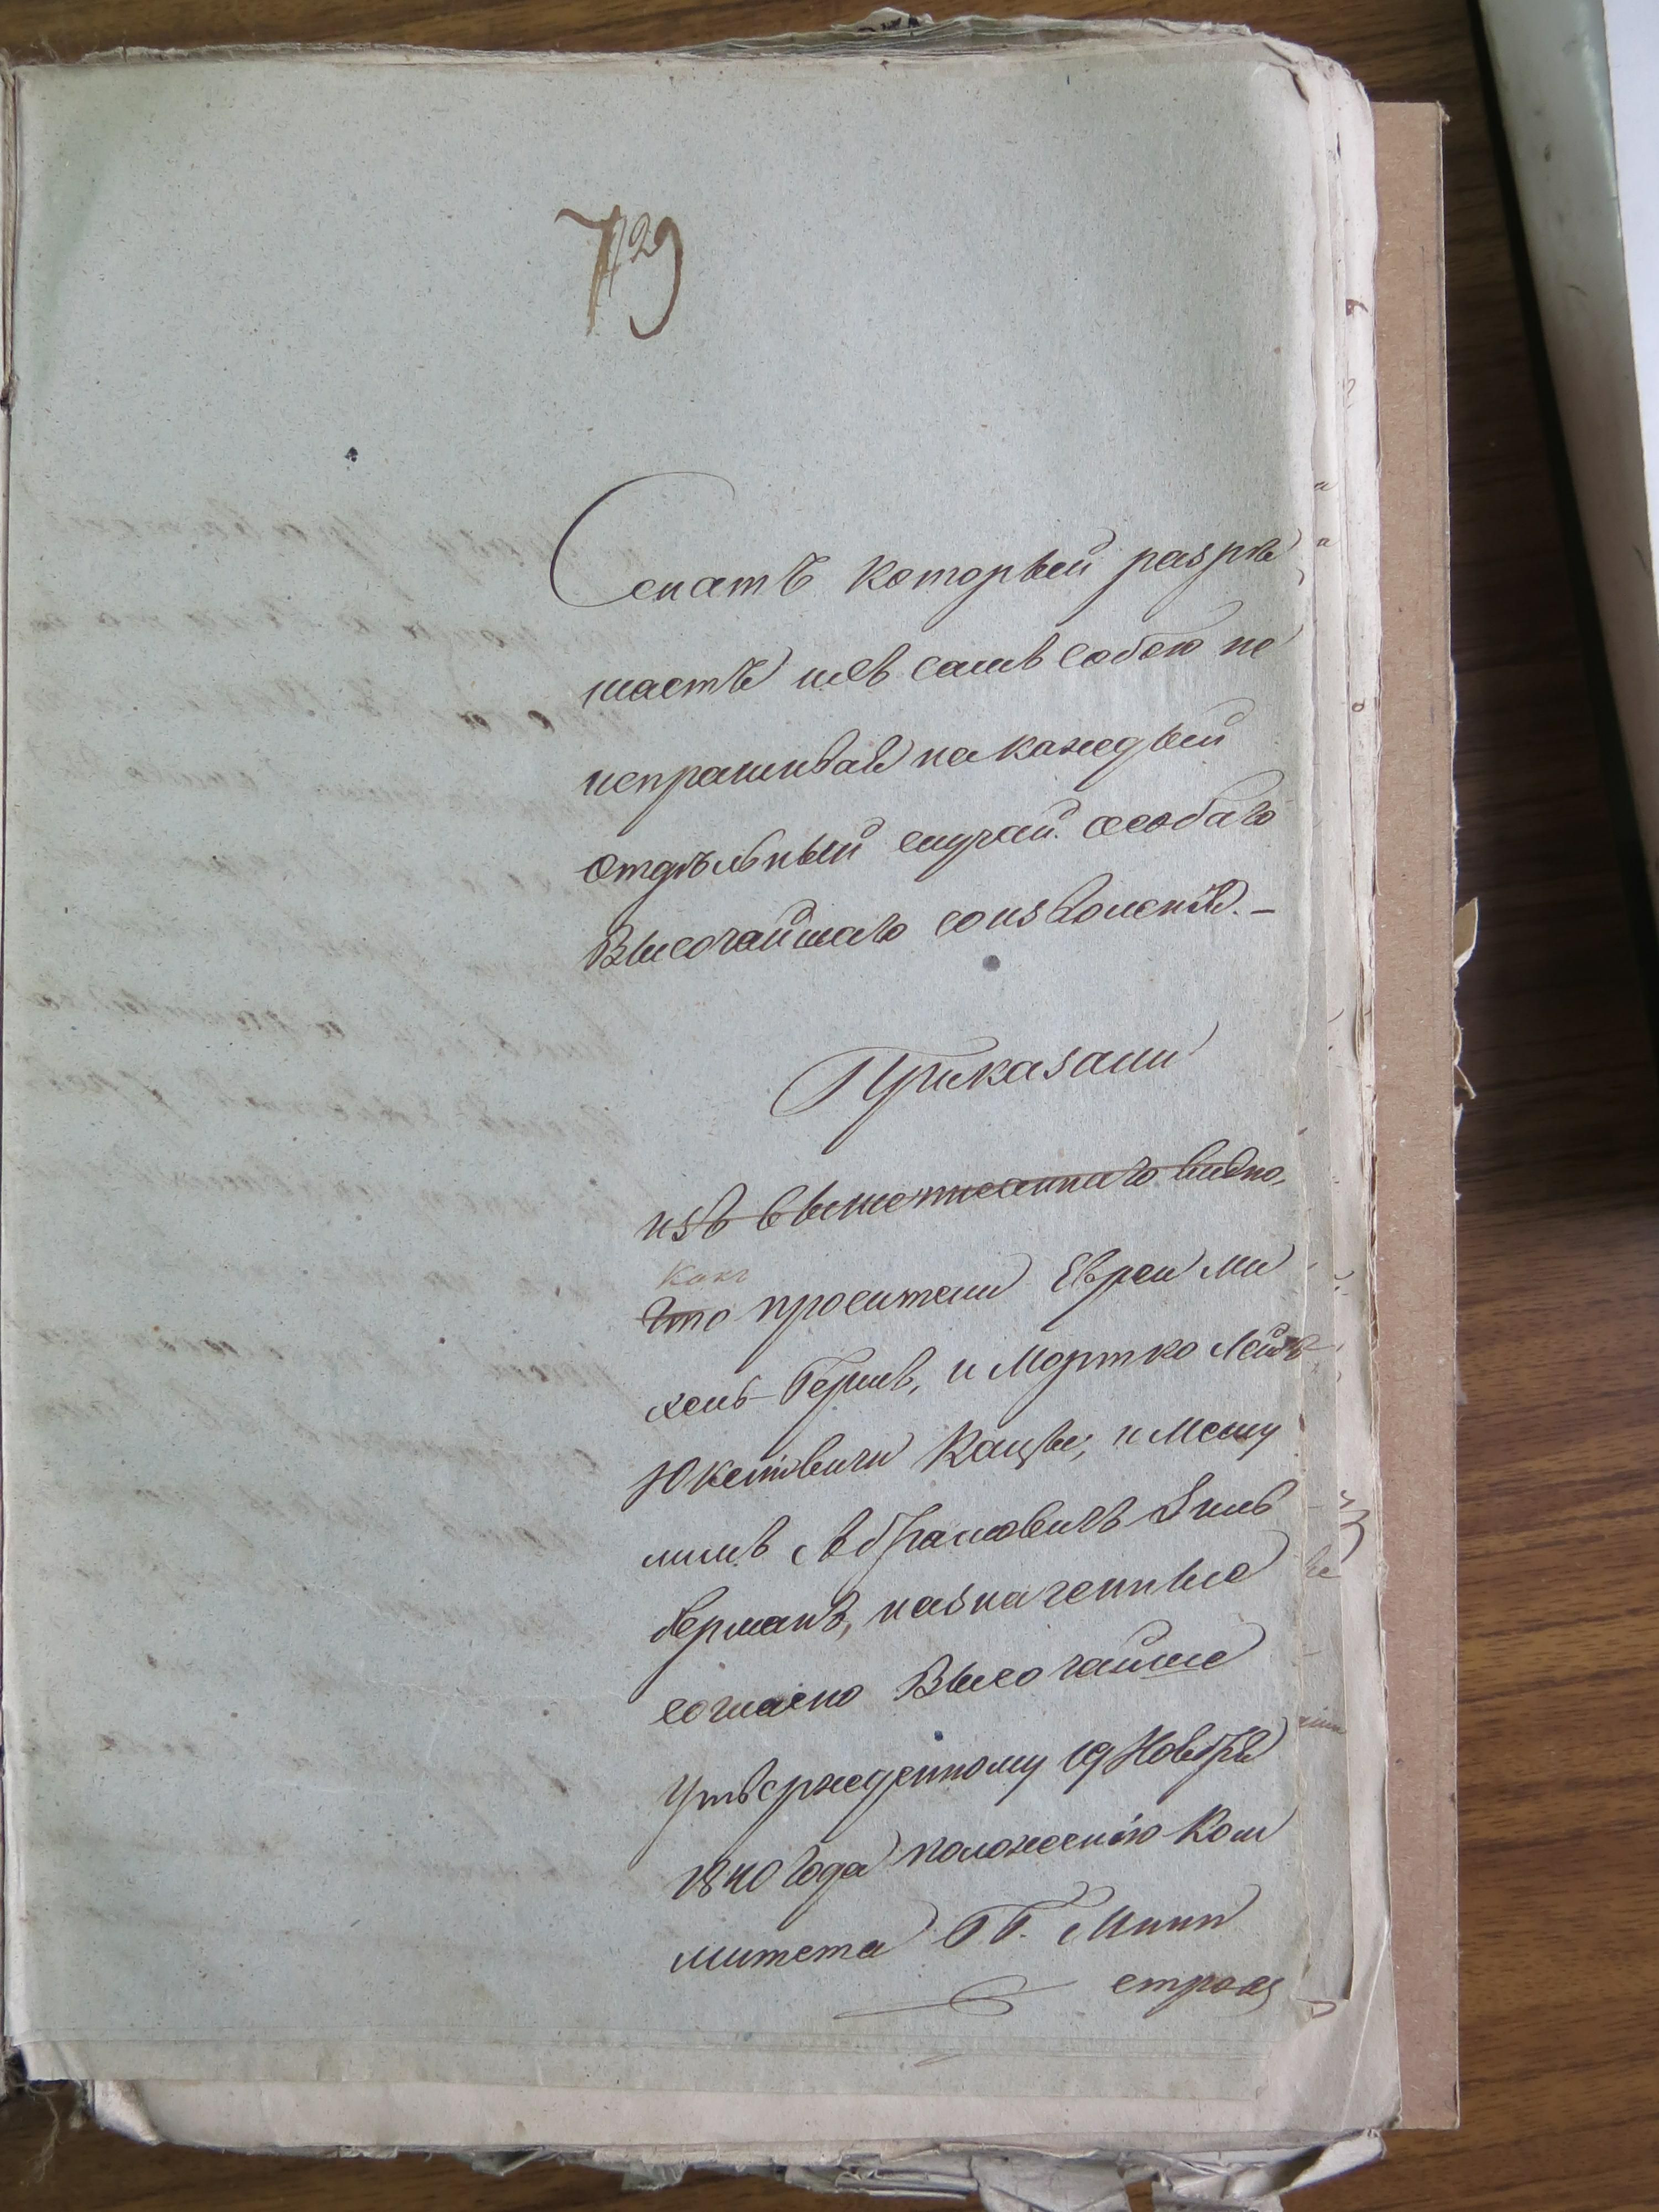 729
Сенатъ который разрѣ
шаетъ ихъ самъ собою не
испрашивая на каждый
отдѣльный случай особаго
Высочайшаго соизволенія. —
Приказали
изъ вышеписаннаго видно,
какъ
что просители Евреи Ми
хель-Гершъ, и Мортко Лейбъ
Юкелевичи Кацы, и Мешу
лимъ Абрамовичъ Зиль
берманъ, назначенные
согласно Высочайше
утвержденному 19 Ноября
1840 года положенію Ком
митета ГГ. Мини
стровъ